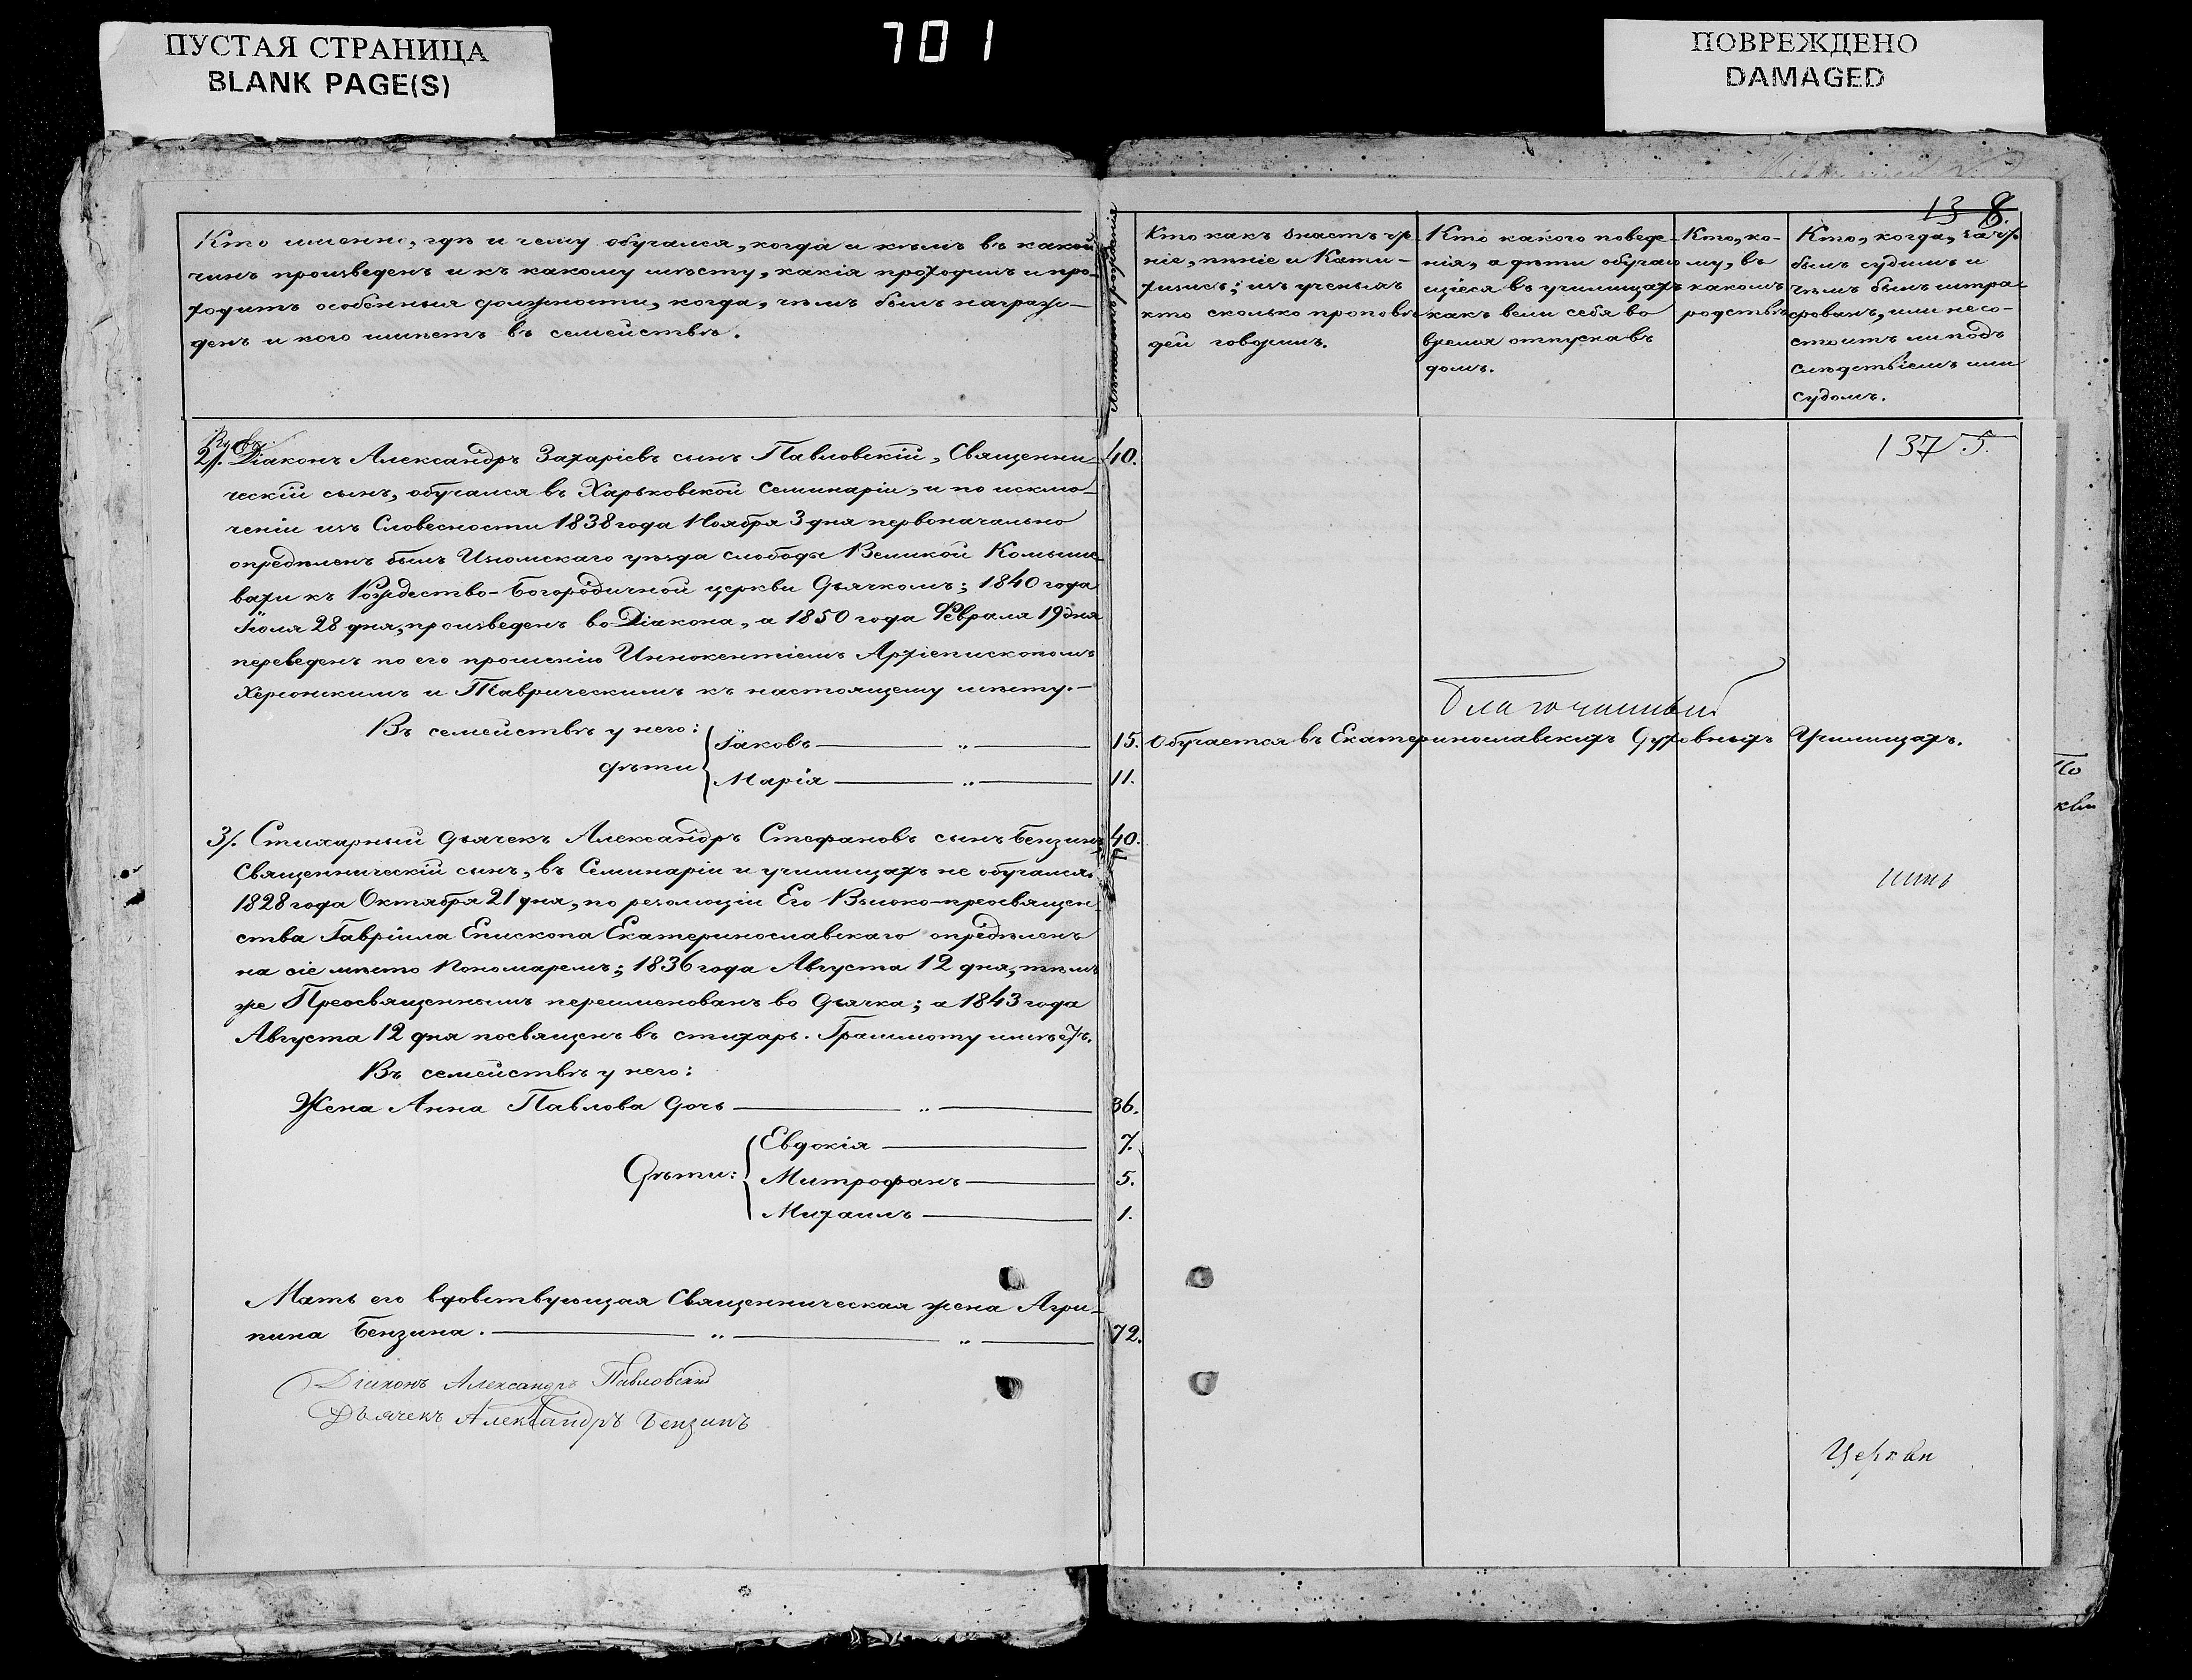 ПУСТАЯ СТРАНИЦА
BLANK PAGE(S)
701
ПОВРЕЖДЕНО
DAMAGED
Кто именно, гдѣ и чему обучался, когда и кѣмъ въ какой
чинъ произведенъ и къ какому мѣсту, какія проходилъ и про-
ходитъ особенныя должности, когда, чѣмъ былъ награж-
денъ и кого имѣетъ въ семействѣ.
2/. Діаконъ Александръ Захаріевъ сынъ Павловскій, Священни-
ческій сынъ, обучался въ Харьковской Семинаріи, и по исклю-
ченіи изъ Словесности 1838 года Ноября 3 дня первоначально
опредѣленъ былъ Изюмскаго уѣзда слободы Великой Комыше-
вахи къ Рождество-Богородичной церкви Дьячкомъ; 1840 года
Іюля 28 дня, произведенъ во Діакона, а 1850 года Февраля 19 дня
переведенъ по его прошенію Иннокентіемъ Архіепископомъ
Херсонскимъ и Таврическимъ къ настоящему мѣсту.-
Въ семействѣ у него:
дѣти
Іаковъ
Марія
3/. Стихарный дьячекъ Александръ Стефановъ сынъ Бензинъ,
Священническій сынъ, въ Семинаріи и училищахъ не обучался.
1828 года Октября 21 дня, по резолюціи Его Высоко-преосвящен-
ства Гавріила Епископа Екатеринославскаго опредѣленъ
на сіе мѣсто Пономаремъ; 1836 года Августа 12 дня, тѣмъ
же Преосвященнымъ переименованъ во дьячка; а 1843 года
Августа 12 дня посвященъ въ стихарь. Граммоту имѣетъ.
Въ семействѣ у него:
Жена Анна Павлова дочь
Дѣти:
Евдокія
Митрофанъ
Михаилъ
Мать его вдовствующая Священническая жена Агри-
пина Бензина.
Діаконъ Александръ Павловскій
Дьячекъ Александръ Бензинъ
13 8.
Кто какъ знаетъ чте-
ніе, пѣніе и Кати-
хизисъ; изъ ученыхъ
кто сколько проповѣ-
дей говорилъ.
Кто какого поведе-
нія, а дѣти обучаю-
щіеся въ училищахъ
какъ вели себя во
время отпуска въ
домъ.
Кто, ко-
му, въ
какомъ
родствѣ
Кто, когда, за что
былъ судимъ и
чѣмъ былъ штра-
фованъ, или не со-
стоитъ ли подъ
слѣдствіемъ или
судомъ.
40.
137 5.
Благочинный
15. Обучается въ Екатеринославскихъ Духовныхъ Училищахъ.
11.
40.
36.
7.
5.
1.
72.
Церкви